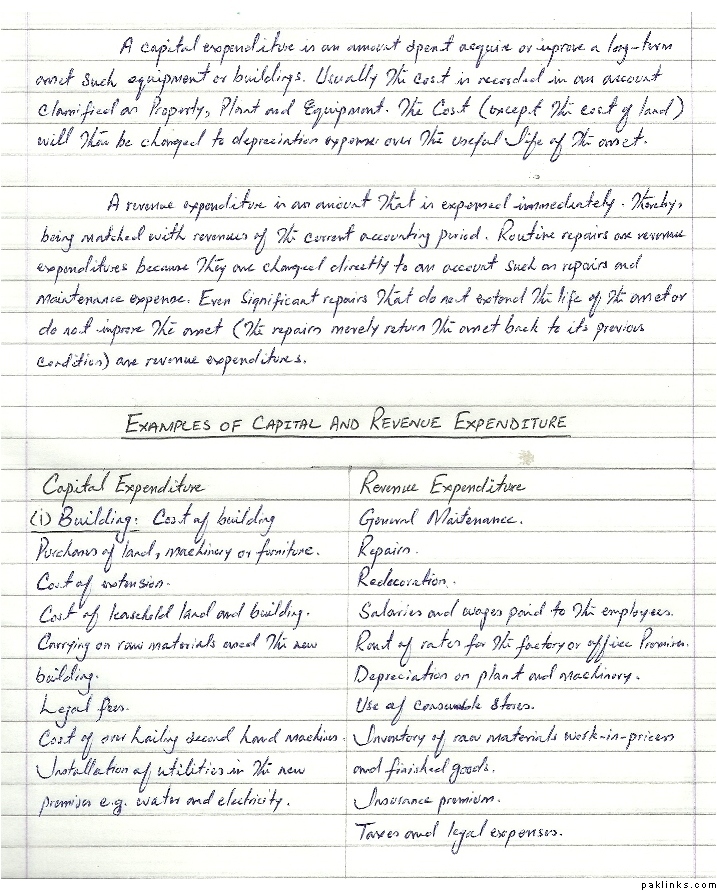 A capital expenditure is an amount spent acquire or improve a long-term
asset such equipment or buildings. Usually the cost is recorded in an account
classified as Property, Plant and Equipment. The Cost (except the cost of land)
will then be charged to depreciation expense over the useful life of the asset.
A revenue expenditure is an amount that is expensed immediately. Thereby,
being matched with revenues of the current accounting period. Routine repairs are revenue
expenditures because they are charged directly to an account such as repairs and
maintenance expense. Even significant repairs that do not extend the life of the asset or
do not improve the asset (the repairs merely return the asset back to its previous
condition) are revenue expenditures.
EXAMPLES OF CAPITAL AND REVENUE EXPENDITURE
Capital Expenditure
(i) Building: Cost of building
Purchases of land, machinery or furniture.
Cost of extension.
Cost of leasehold land and building.
Carrying on raw materials used the new
building.
Legal fees.
Cost of over hailing second hand machines.
Installation of utilities in the new
premises e.g. water and electricity.
Revenue Expenditure
General Maitenance.
Repairs.
Redecoration.
Salaries and wages paid to the employees.
Rent of rates for the factory or office Premises.
Depreciation on plant and machinery.
Use of consumable stores.
Inventory of raw materials work-in-process
and finished goods.
Insurance premium.
Taxes and legal expenses.
paklinks.com